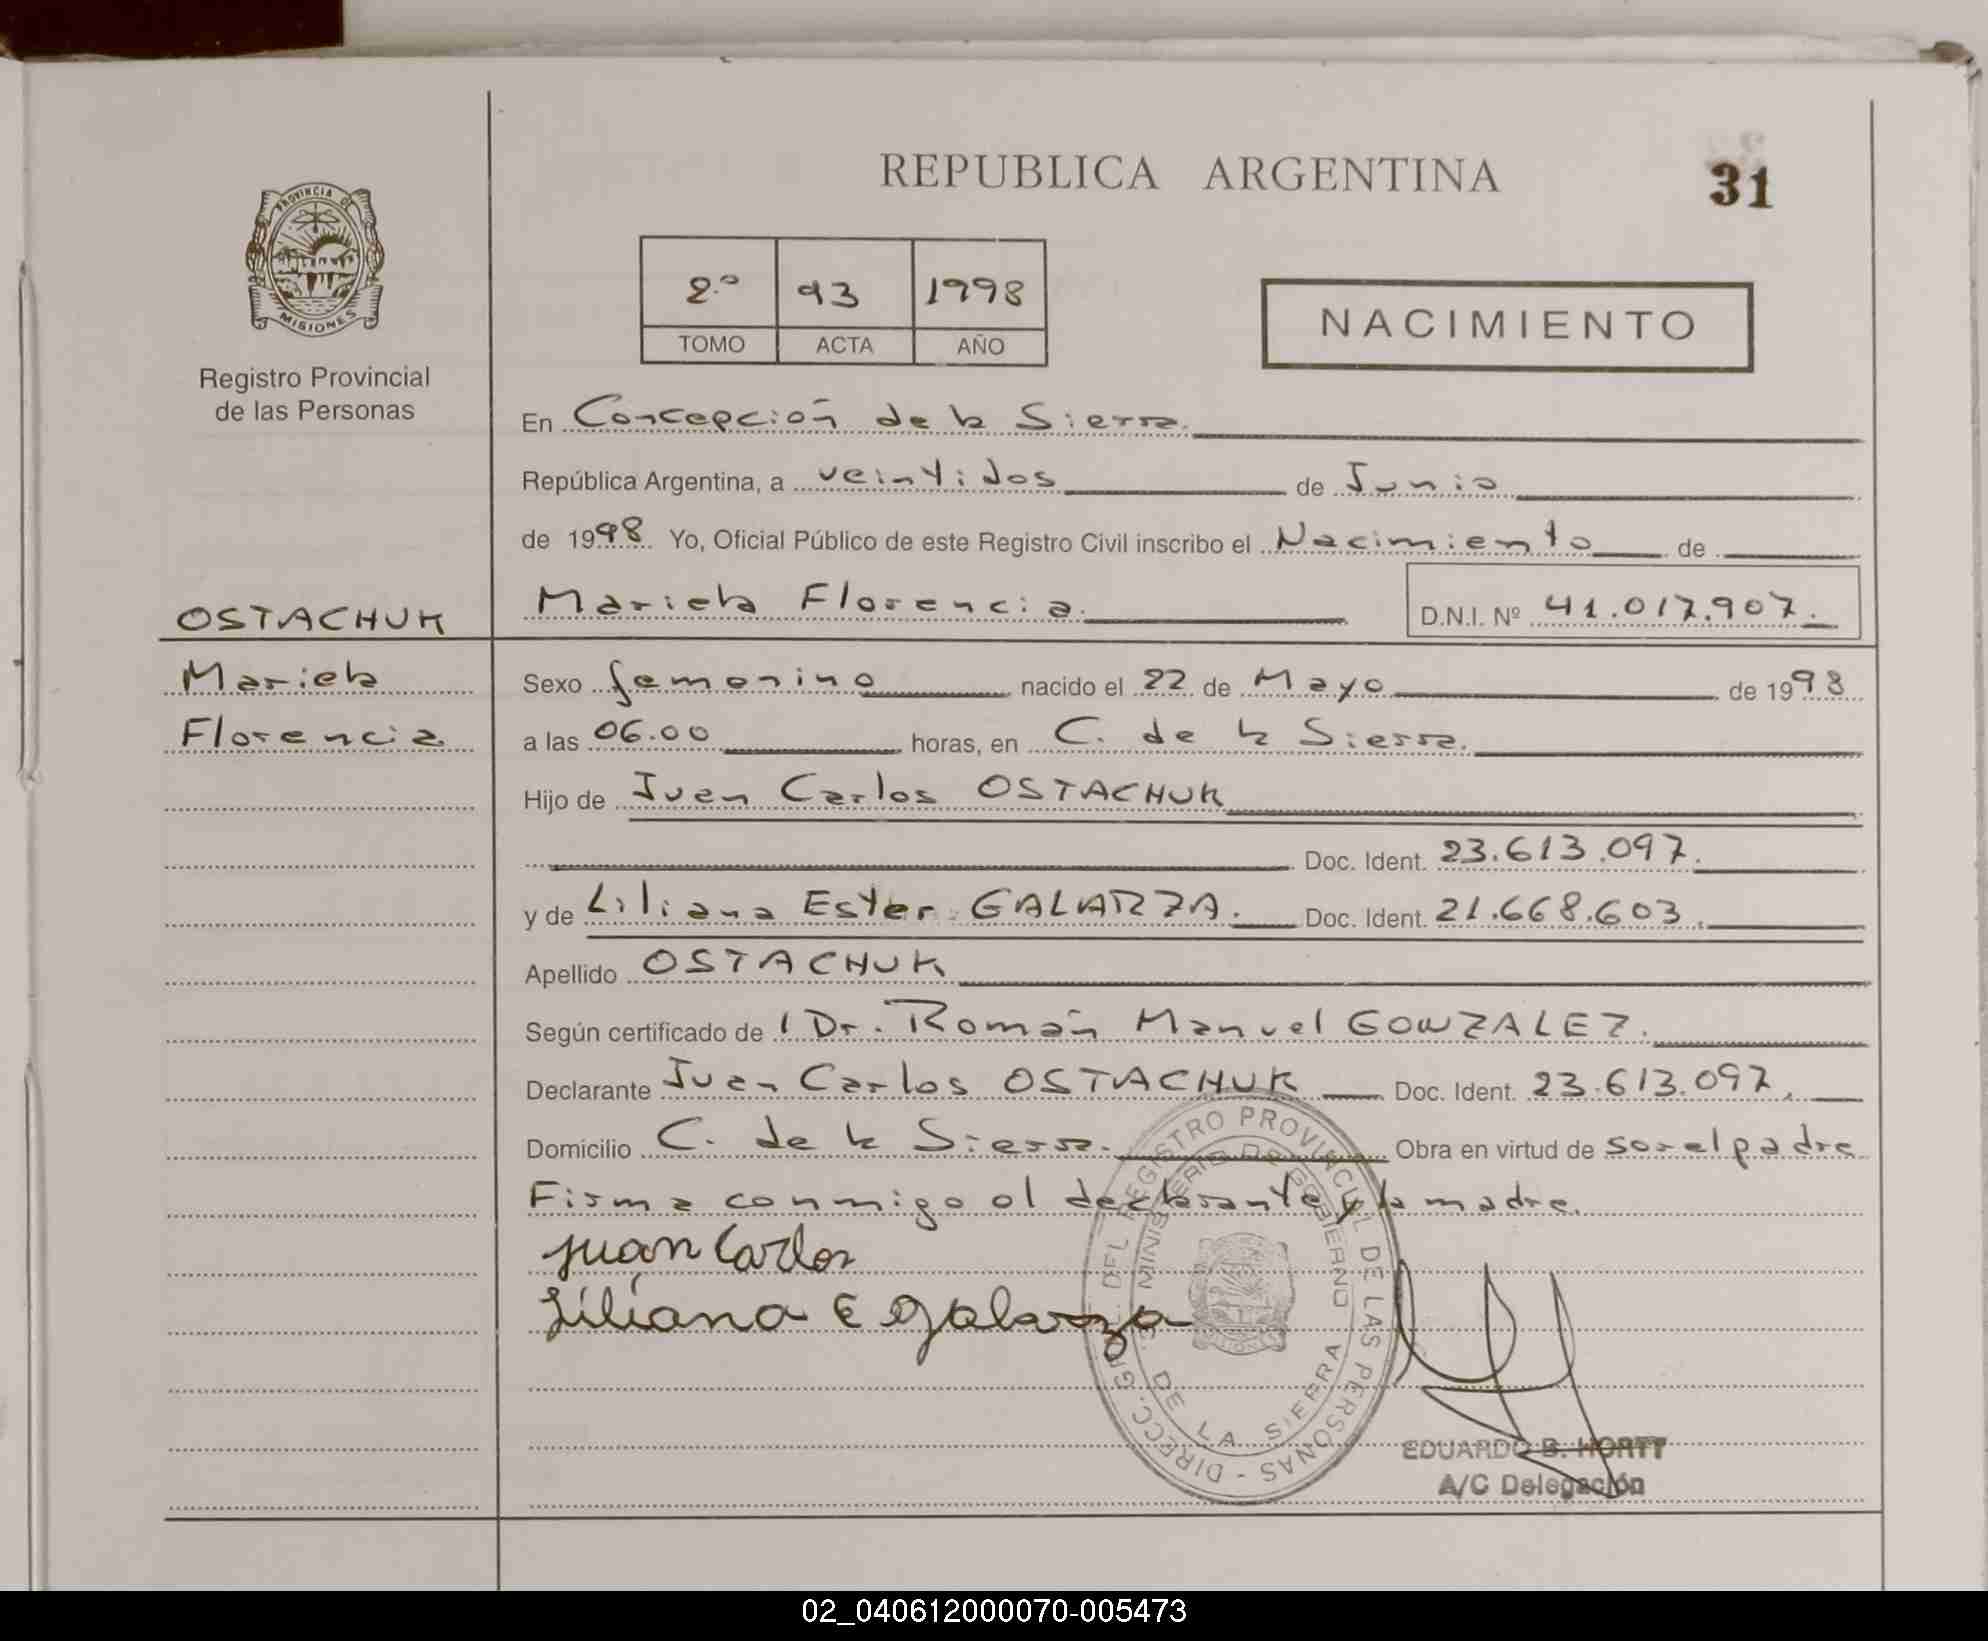 REPUBLICA ARGENTINA
31
PROVINCIA DE
MISIONES
Registro Provincial
de las Personas
2º 93 1998
TOMO ACTA AÑO
NACIMIENTO
En Concepción de la Sierra.
República Argentina, a veintidos de Junio
de 1998 Yo, Oficial Público de este Registro Civil inscribo el Nacimiento de
OSTACHUK
Mariela Florencia. D.N.I. Nº 41.017.907.
Mariela
Florencia
Sexo femenino nacido el 22 de Mayo de 1998
a las 06.00 horas, en C. de la Sierra.
Hijo de Juan Carlos OSTACHUK
Doc. Ident. 23.613.097.
y de Liliana Ester GALARZA. Doc. Ident. 21.668.603.
Apellido OSTACHUK
Según certificado de / Dr. Román Manuel GONZALEZ.
Declarante Juan Carlos OSTACHUK Doc. Ident. 23.613.097.
Domicilio C. de la Sierra. Obra en virtud de ser el padre
Firma conmigo el declarante y la madre.
Juan Carlos
Liliana E Galarza
DIRECC. GRAL. DEL REGISTRO PROVINCIAL DE LAS PERSONAS
MINISTERIO DE GOBIERNO
DE LA SIERRA
EDUARDO B. HORTT
A/C Delegación
02_040612000070-005473